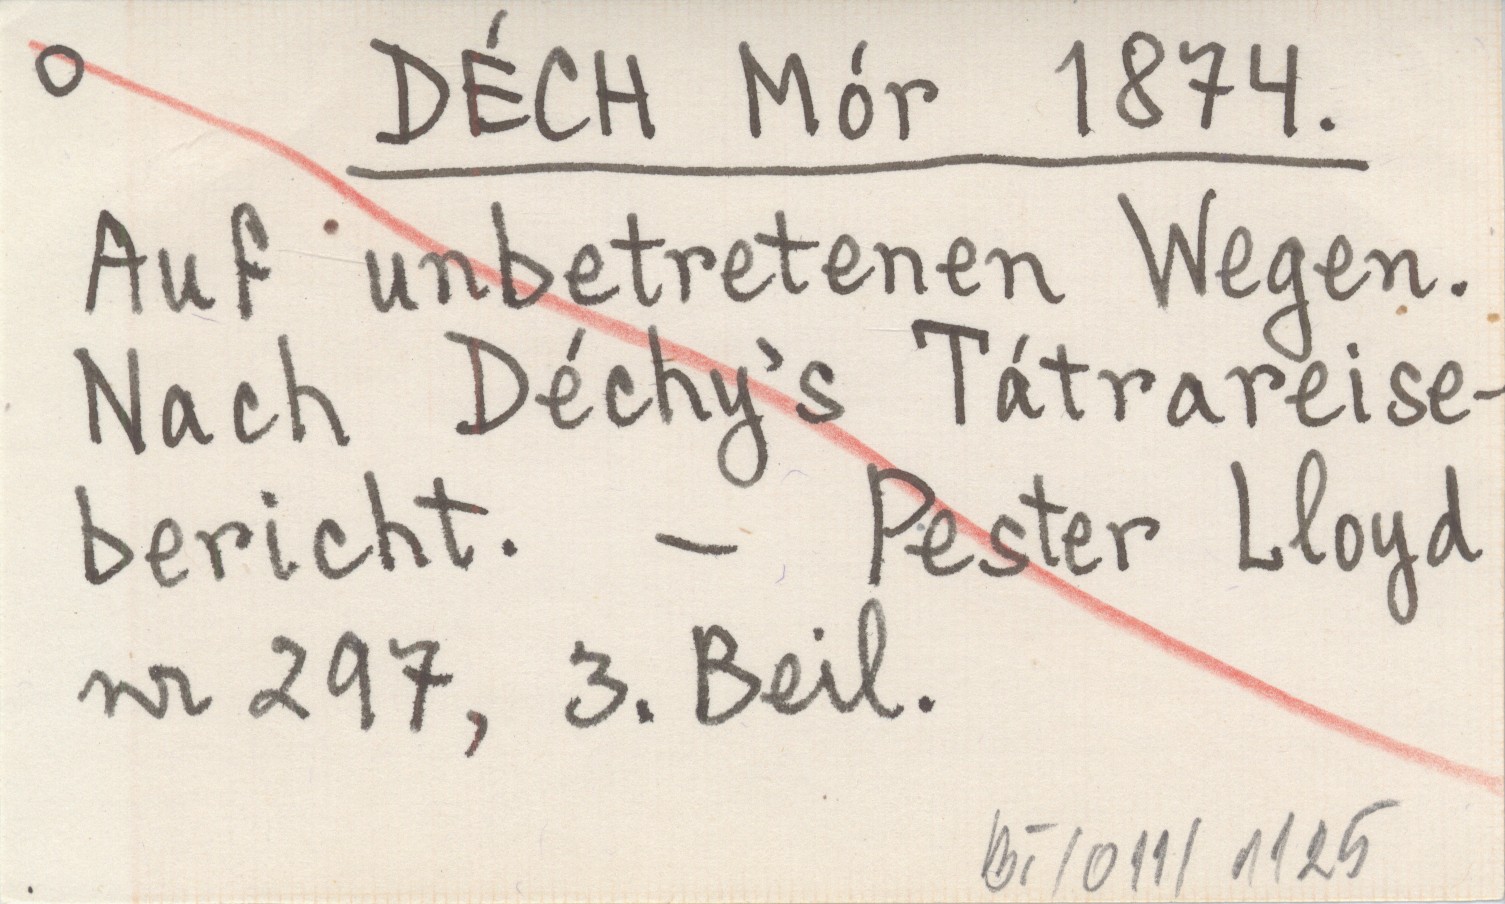 DÉCH Mór 1874.
Auf unbetretenen Wegen.
Nach Déchy's Tátrareise-
bericht. – Pester Lloyd
nr 297, 3. Beil.
/011/ 1125